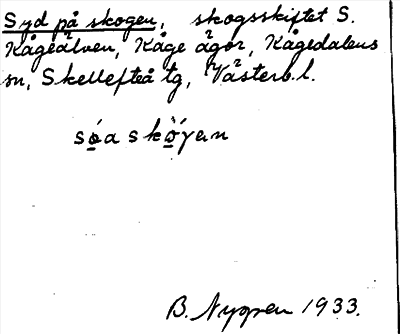 Syd på skogen, skogsskiftet S.
Kågeälven, Kåge ägor, Kågedalens
sn, Skellefteå tg, Västerb. l.
søa skøɣen
B. Nygren 1933.